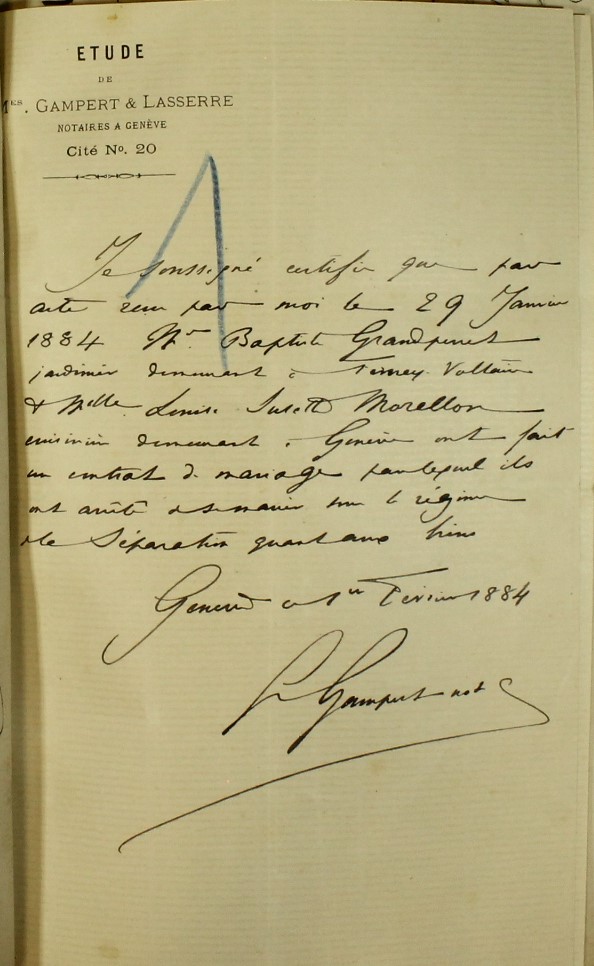 ETUDE
DE
Mes. GAMPERT & LASSERRE
NOTAIRES A GENÈVE
Cité No. 20
Je soussigné certifie que par
acte reçu par moi le 29 Janvier
1884 Mr Baptiste Grandperret
jardinier demeurant à Ferney Voltaire
& Melle Louise Susette Morellon
cuisinière demeurant à Genève ont fait
un contrat de mariage par lequel ils
ont arrêté de se marier sous le régime
de la Séparation quant aux biens
Genève ce 1er Février 1884
Gampert not